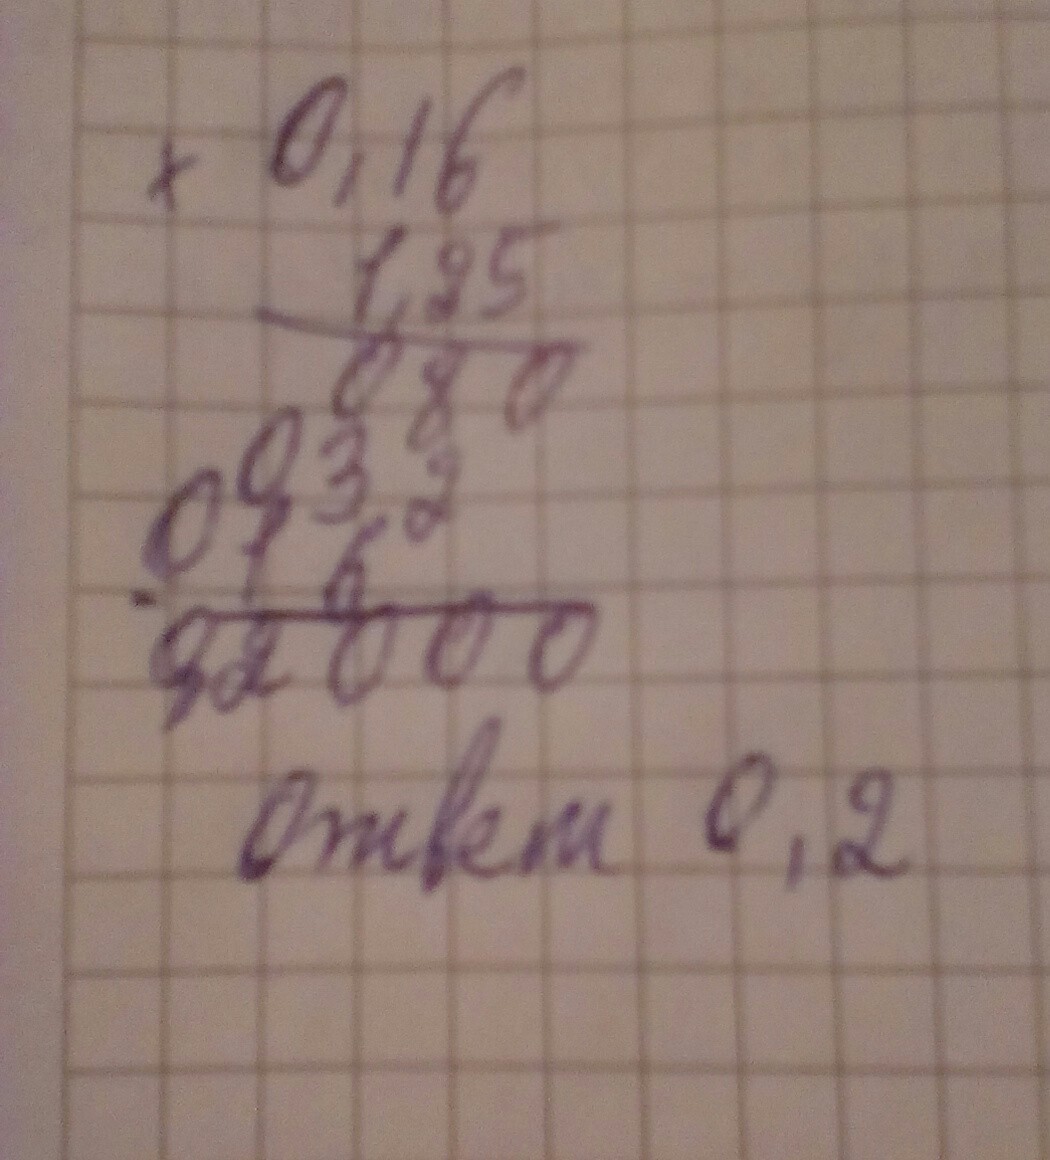 × 0,16
1,25
080
032
016
0,2000
Ответ 0,2